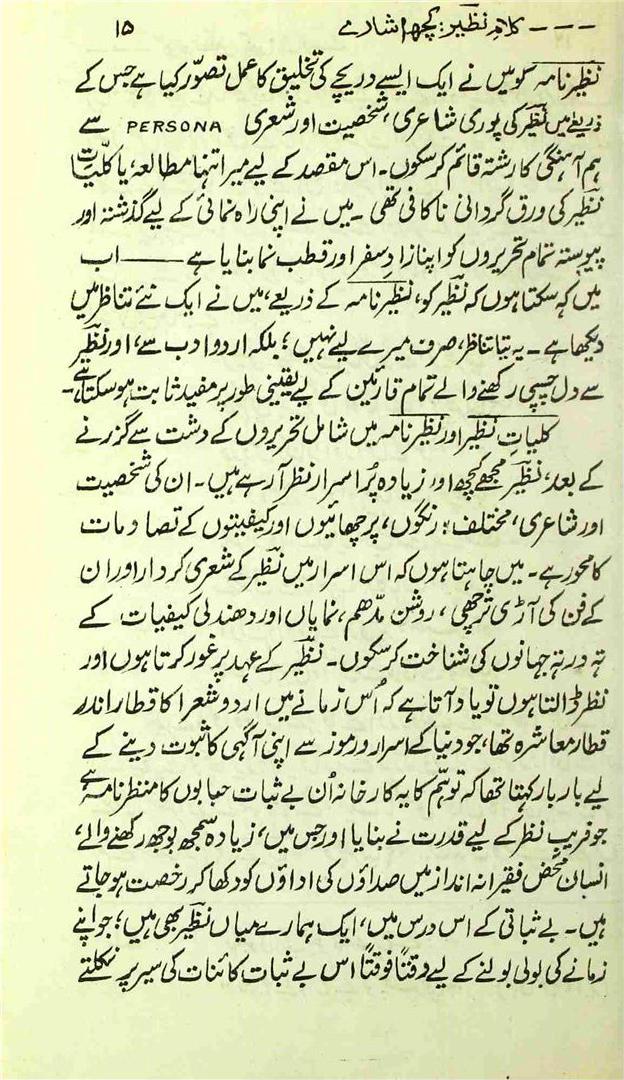 --- کلامِ نظیر: کچھ اشارے ۱۵
نظیر نامہ کو میں نے ایک ایسے دریچے کی تخلیق کا عمل تصوّر کیا ہے جس کے
ذریعے میں نظیر کی پوری شاعری، شخصیت اور شعری PERSONA سے
ہم آہنگی کا رشتہ قائم کر سکوں۔ اس مقصد کے لیے میرا تنہا مطالعہ، یا کلّیاتِ
نظیر کی ورق گردانی ناکافی تھی۔ میں نے اپنی راہ نمائی کے لیے گذشتہ اور
پیوستہ تمام تحریروں کو اپنا زادِ سفر اور قطب نما بنایا ہے —— اب
میں کہہ سکتا ہوں کہ نظیر کو، نظیر نامہ کے ذریعے، میں نے ایک نئے تناظر میں
دیکھا ہے۔ یہ نیا تناظر، صرف میرے لیے نہیں؛ بلکہ اردو ادب سے، اور نظیر
سے دل چسپی رکھنے والے تمام قارئین کے لیے یقینی طور پر مفید ثابت ہو سکتا ہے۔
کلیاتِ نظیر اور نظیر نامہ میں شامل تحریروں کے دشت سے گزرنے
کے بعد، نظیر مجھے کچھ اور زیادہ پُر اسرار نظر آ رہے ہیں۔ ان کی شخصیت
اور شاعری، مختلف؛ رنگوں، پرچھائیوں اور کیفیتوں کے تصادمات
کا محور ہے۔ میں چاہتا ہوں کہ اس اسرار میں نظیر کے شعری کردار اور ان
کے فن کی آڑی ترچھی، روشن مدّھم، نمایاں اور دھندلی کیفیات کے
تہ در تہ جہانوں کی شناخت کر سکوں۔ نظیر کے عہد پر غور کرتا ہوں اور
نظر ڈالتا ہوں تو یاد آتا ہے کہ اُس زمانے میں اردو شعرا کا قطار اندر
قطار معاشرہ تھا، جو دنیا کے اسرار و رموز سے اپنی آگہی کا ثبوت دینے کے
لیے بار بار کہتا تھا کہ توہّم کا یہ کارخانہ اُن بے ثبات حبابوں کا منظر نامہ ہے
جو فریبِ نظر کے لیے قدرت نے بنایا اور جس میں، زیادہ سمجھ بوجھ رکھنے والے،
انسان محض فقیرانہ انداز میں صداؤں کی اداؤں کو دکھا کر رخصت ہو جاتے
ہیں۔ بے ثباتی کے اس درس میں، ایک ہمارے میاں نظیر بھی ہیں؛ جو اپنے
زمانے کی بولی بولنے کے لیے وقتاً فوقتاً اس بے ثبات کائنات کی سیر پر نکلتے